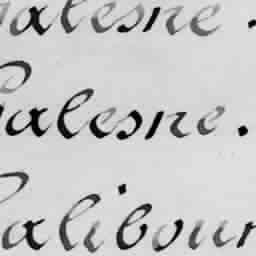 alesne.
alesne.
alibour